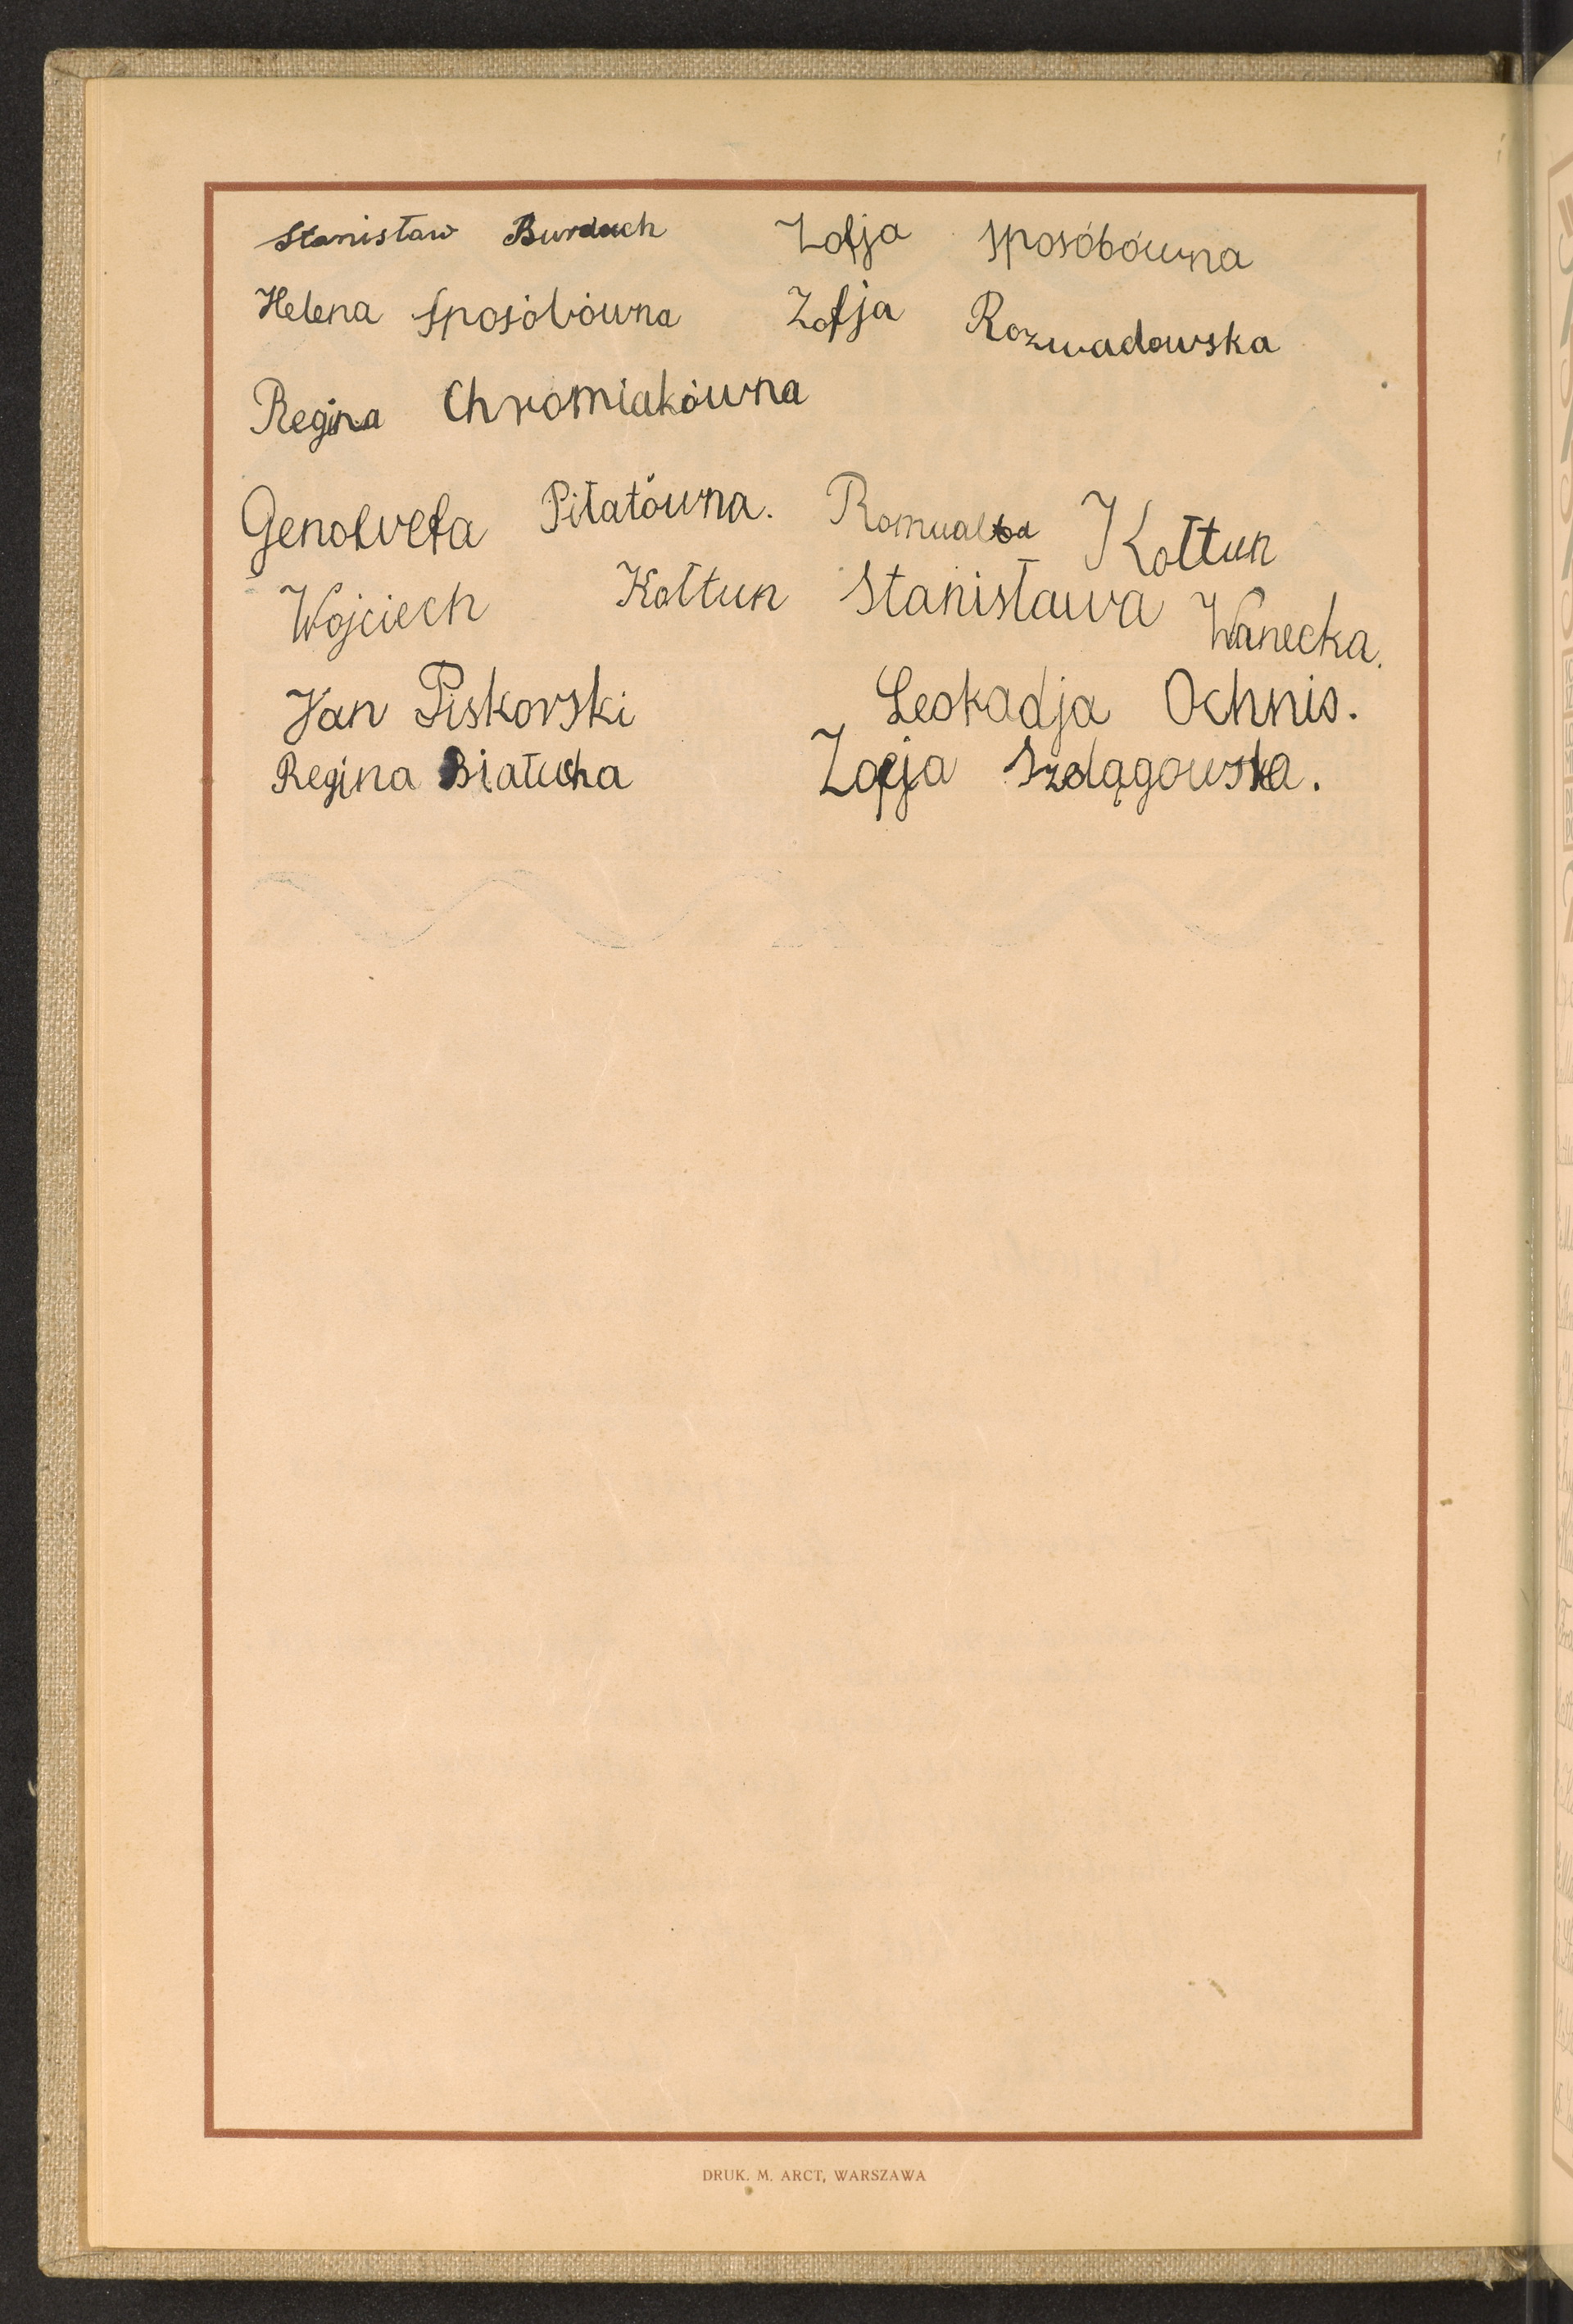 Stanisław Burdach Zofja Sposóbówna
Helena Sposóbówna Zofja Rozwadowska
Regina Chromiakówna
Genowefa Piłatówna. Romualda Kołtun
Wojciech Kołtun Stanisława Wanecka.
Jan Piskorski Leokadja Ochnio.
Regina Białucha Zofja Szelągowska.
DRUK. M. ARCT, WARSZAWA